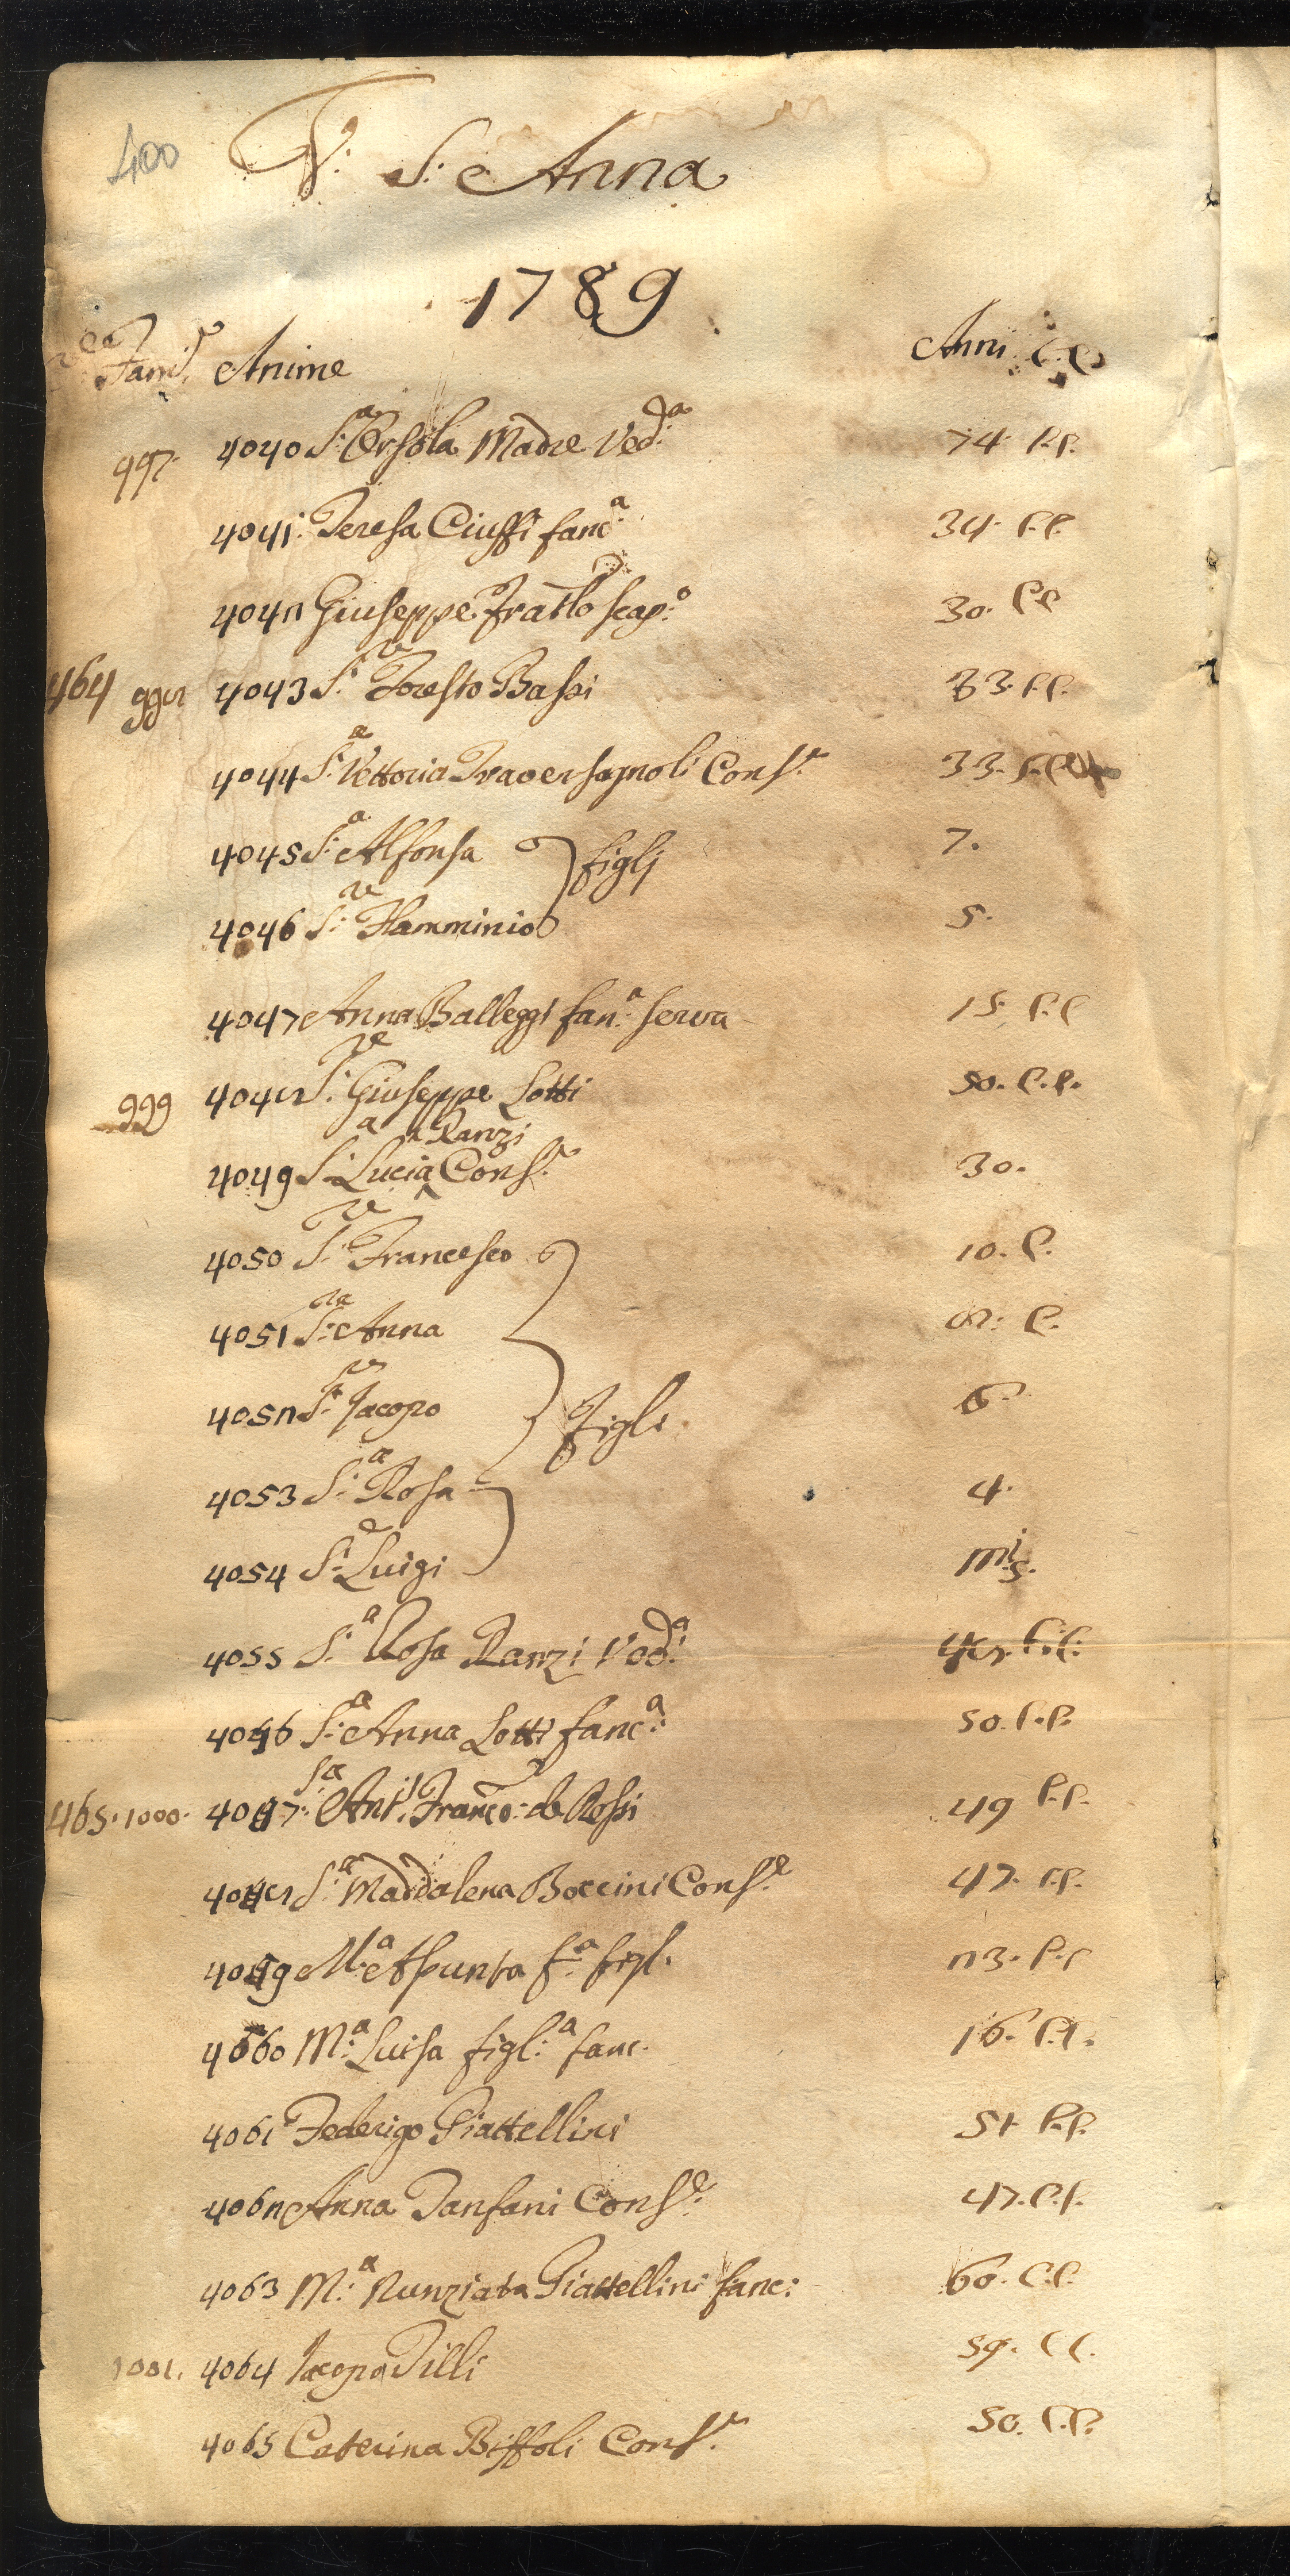 400
V: S: Anna
1789
Fami. Anime Anni C.C.
997. 4040 S:ª Orsola Madre Ved:ª 74. C.C.
4041. Teresa Ciuffi fanc:ª 34. C.C.
4042 Giuseppe Frallo scap:º 30. C.C.
464 998 4043 S:re Foresto Bassi 33. C.C.
4044 S:ª Vettoria Traversagnoli Cons:e 33. C.C.
4045 S:ª Alfonsa figlj 7.
4046 S:re Flamminio 5.
4047 Anna Balleggi fan:ª serva 15. C.C.
999 4048 S:re Giuseppe Lotti 50. C.C.
4049 S:ª Lucia Ranzi Cons:e 30.
4050 S:re Francesco 10. C.
4051 S:ra Anna 8: C.
4052 S:re Jacopo Figli 6.
4053 S:ª Rosa 4.
4054 S:e Luigi mi5.
4055 S:ª Rosa Ranzi Ved:ª 48. C.C.
4056 S:ª Anna Lotti fanc:ª 50. C.C.
465. 1000. 4057. Ant. Franco: de Rossi 49 C.C.
4058 S:ª Maddalena Boccini Cons:e 47. C.C.
4059 M:ª Asunta f:ª figl. 23. C.C.
4060 M:ª Luisa figl:ª fanc. 16. C.C.
4061 Federigo Piattellini 51 C.C.
4062 Anna Tanfani Cons:e 47. C.C.
4063 M:ª Nunziata Piattellini fanc: 60. C.C.
1001. 4064 Jacopo Tilli 59. C.C.
4065 Caterina Biffoli Cons:e 50. C.C.